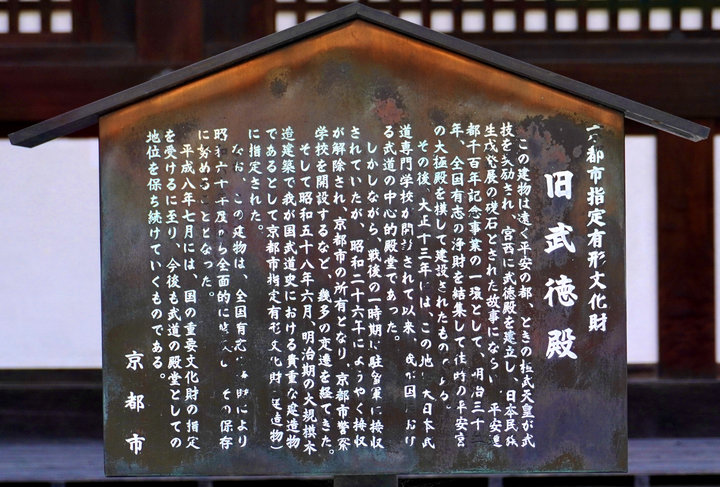 京都市指定有形文化財
旧武徳殿
この建物は遠く平安の都、ときの桓武天皇が武
技を奨励され、宮西に武徳殿を建立し、日本民族
生成発展の礎石とされた故事にならい、平安遷
都千百年記念事業の一環として、明治三十二
年、全国有志の浄財を結集して往時の平安宮
の大極殿を模して建設されたものである。
その後、大正十三年には、この地に大日本武
道専門学校が開設されて以来、我が国における
武道の中心的殿堂であった。
しかしながら、戦後の一時期に駐留軍に接収
されていたが、昭和二十六年にようやく接収
が解除され、京都市の所有となり、京都市警察
学校を開設するなど、幾多の変遷を経てきた。
そして昭和五十八年六月、明治期の大規模木
造建築で我が国武道史における貴重な建造物
であるとして京都市指定有形文化財(建造物)
に指定された。
なお、この建物は、全国有志の
により
昭和六十
年度から全面的に
し、その保存
に努めることとなった。
平成八年七月には、国の重要文化財の指定
を受けるに至り、今後も武道の殿堂としての
地位を保ち続けていくものである。
京都市